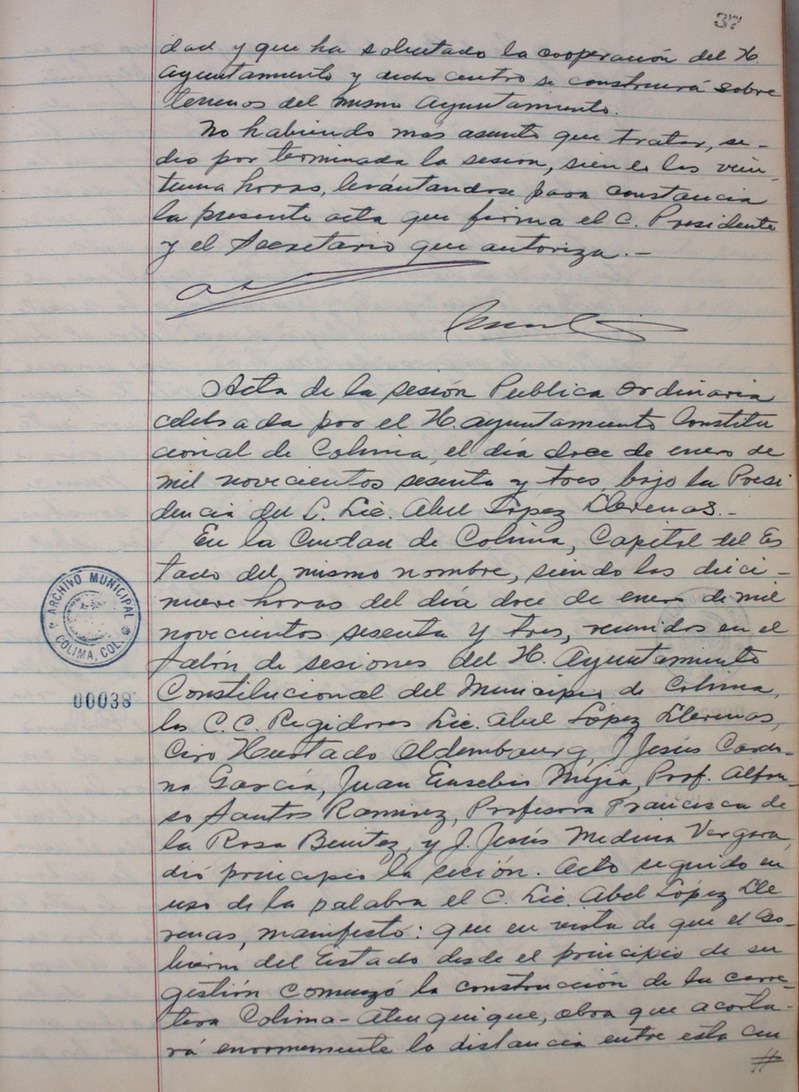 37
dad y que ha solicitado la cooperación del H.
Ayuntamiento y dicho centro se construirá sobre
terrenos del mismo Ayuntamiento.
No habiendo mas asunto que tratar, se-
dió por terminada la sesión, siendo las vein-
tiuna horas, levántandose para constancia
la presente acta que firma el C. Presidente
y el Secretario que autoriza.-
Acta de la sesión Publica ordinaria
celebrada por el H. Ayuntamiento Constitu
cional de Colima, el día doce de enero de
mil novecientos sesenta y tres, bajo la Presi
dencia del C. Lic. Abel López Llerenas.-
En la Ciudad de Colima, Capital del Es
tado del mismo nombre, siendo las dieci-
nueve horas del día doce de enero de mil
novecientos sesenta y tres, reunidos en el
Salón de sesiones del H. Ayuntamiento
Constitucional del Municipio de Colima,
los C.C. Regidores Lic. Abel López Llerenas,
Ciro Hurtado Oldembourg, J. Jesús Carde-
na García, Juan Eusebio Mejía, Prof. Alfon-
so Santos Ramírez, Profesora Francisca de
la Rosa Benítez, y J. Jesús Medina Vergara,
dió principio la seción. Acto seguido en
uso de la palabra el C. Lic. Abel López Lle
renas, manifestó: que en vista de que el Go-
bierno del Estado desde el principio de su
gestión comenzó la construcción de la carre-
tera Colima-Atenquique, obra que acorta-
rá enormemente la distancia entre esta ciu
ARCHIVO MUNICIPAL
COLIMA, COL.
00038